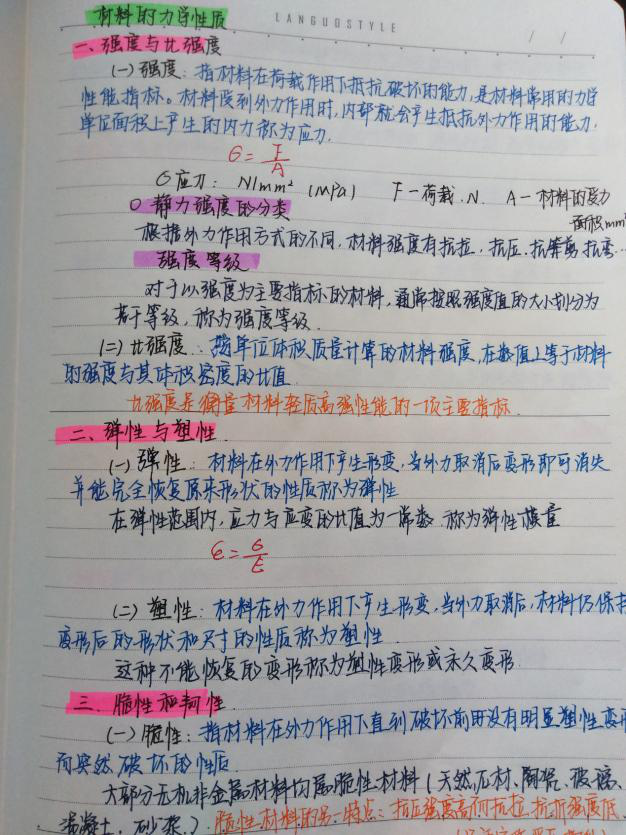 材料的力学性质
LANGUOSTYLE
/ /
一、强度与比强度
(一)强度：指材料在荷载作用下抵抗破坏的能力,是材料常用的力学
性能指标。材料受到外力作用时,内部就会产生抵抗外力作用的能力,
单位面积上产生的内力称为应力.
б=F/A
б应力： N/mm² (MPa) F-荷载.N. A-材料的受力
面积mm²
静力强度的分类
根据外力作用方式的不同,材料强度有抗拉,抗压.抗剪,抗弯...
强度等级
对于以强度为主要指标的材料,通常按照强度值的大小划分为
若干等级,称为强度等级.
(二)比强度：按单位体积质量计算的材料强度,在数值上等于材料
的强度与其体积密度的比值.
比强度是衡量材料轻质高强性能的一项主要指标.
二、弹性与塑性.
(一)弹性：材料在外力作用下产生形变,当外力取消后变形即可消失
并能完全恢复原来形状的性质称为弹性
在弹性范围内,应力与应变的比值为一常数.称为弹性模量
ε=б/E
(二)塑性：材料在外力作用下产生形变,当外力取消后,材料仍保持
变形后的形状和尺寸的性质称为塑性.
这种不能恢复的变形称为塑性变形或永久变形.
三、脆性和韧性.
(一)脆性：指材料在外力作用下直到破坏前毋没有明显塑性变形
而突然破坏的性质.
大部分无机非金属材料均属脆性材料(天然石材、陶瓷、玻璃、
混凝土,砂浆.)脆性材料的另一特点：抗压强度高而抗拉.抗折强度低.